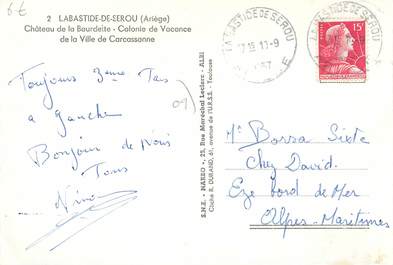 6€
2 LABASTIDE-DE-SEROU (Ariège)
Château de la Bourdette - Colonie de Vacance
de la Ville de Carcassonne
Toujours 3ème Tas
a ganche
Bonjour de Nous
Tous
Nino
09
S.N.E. - NAREO, 25, Rue Maréchal Leclerc - ALBI
Cliché R. DURAND, 61, avenue de l'U.R.S.S. - Toulouse
LABASTIDE DE SEROU
17 15 11-9
1957
15F
Mr Borsa Sixte
Chez David.
Eze bord de Mer
Alpes-Maritimes